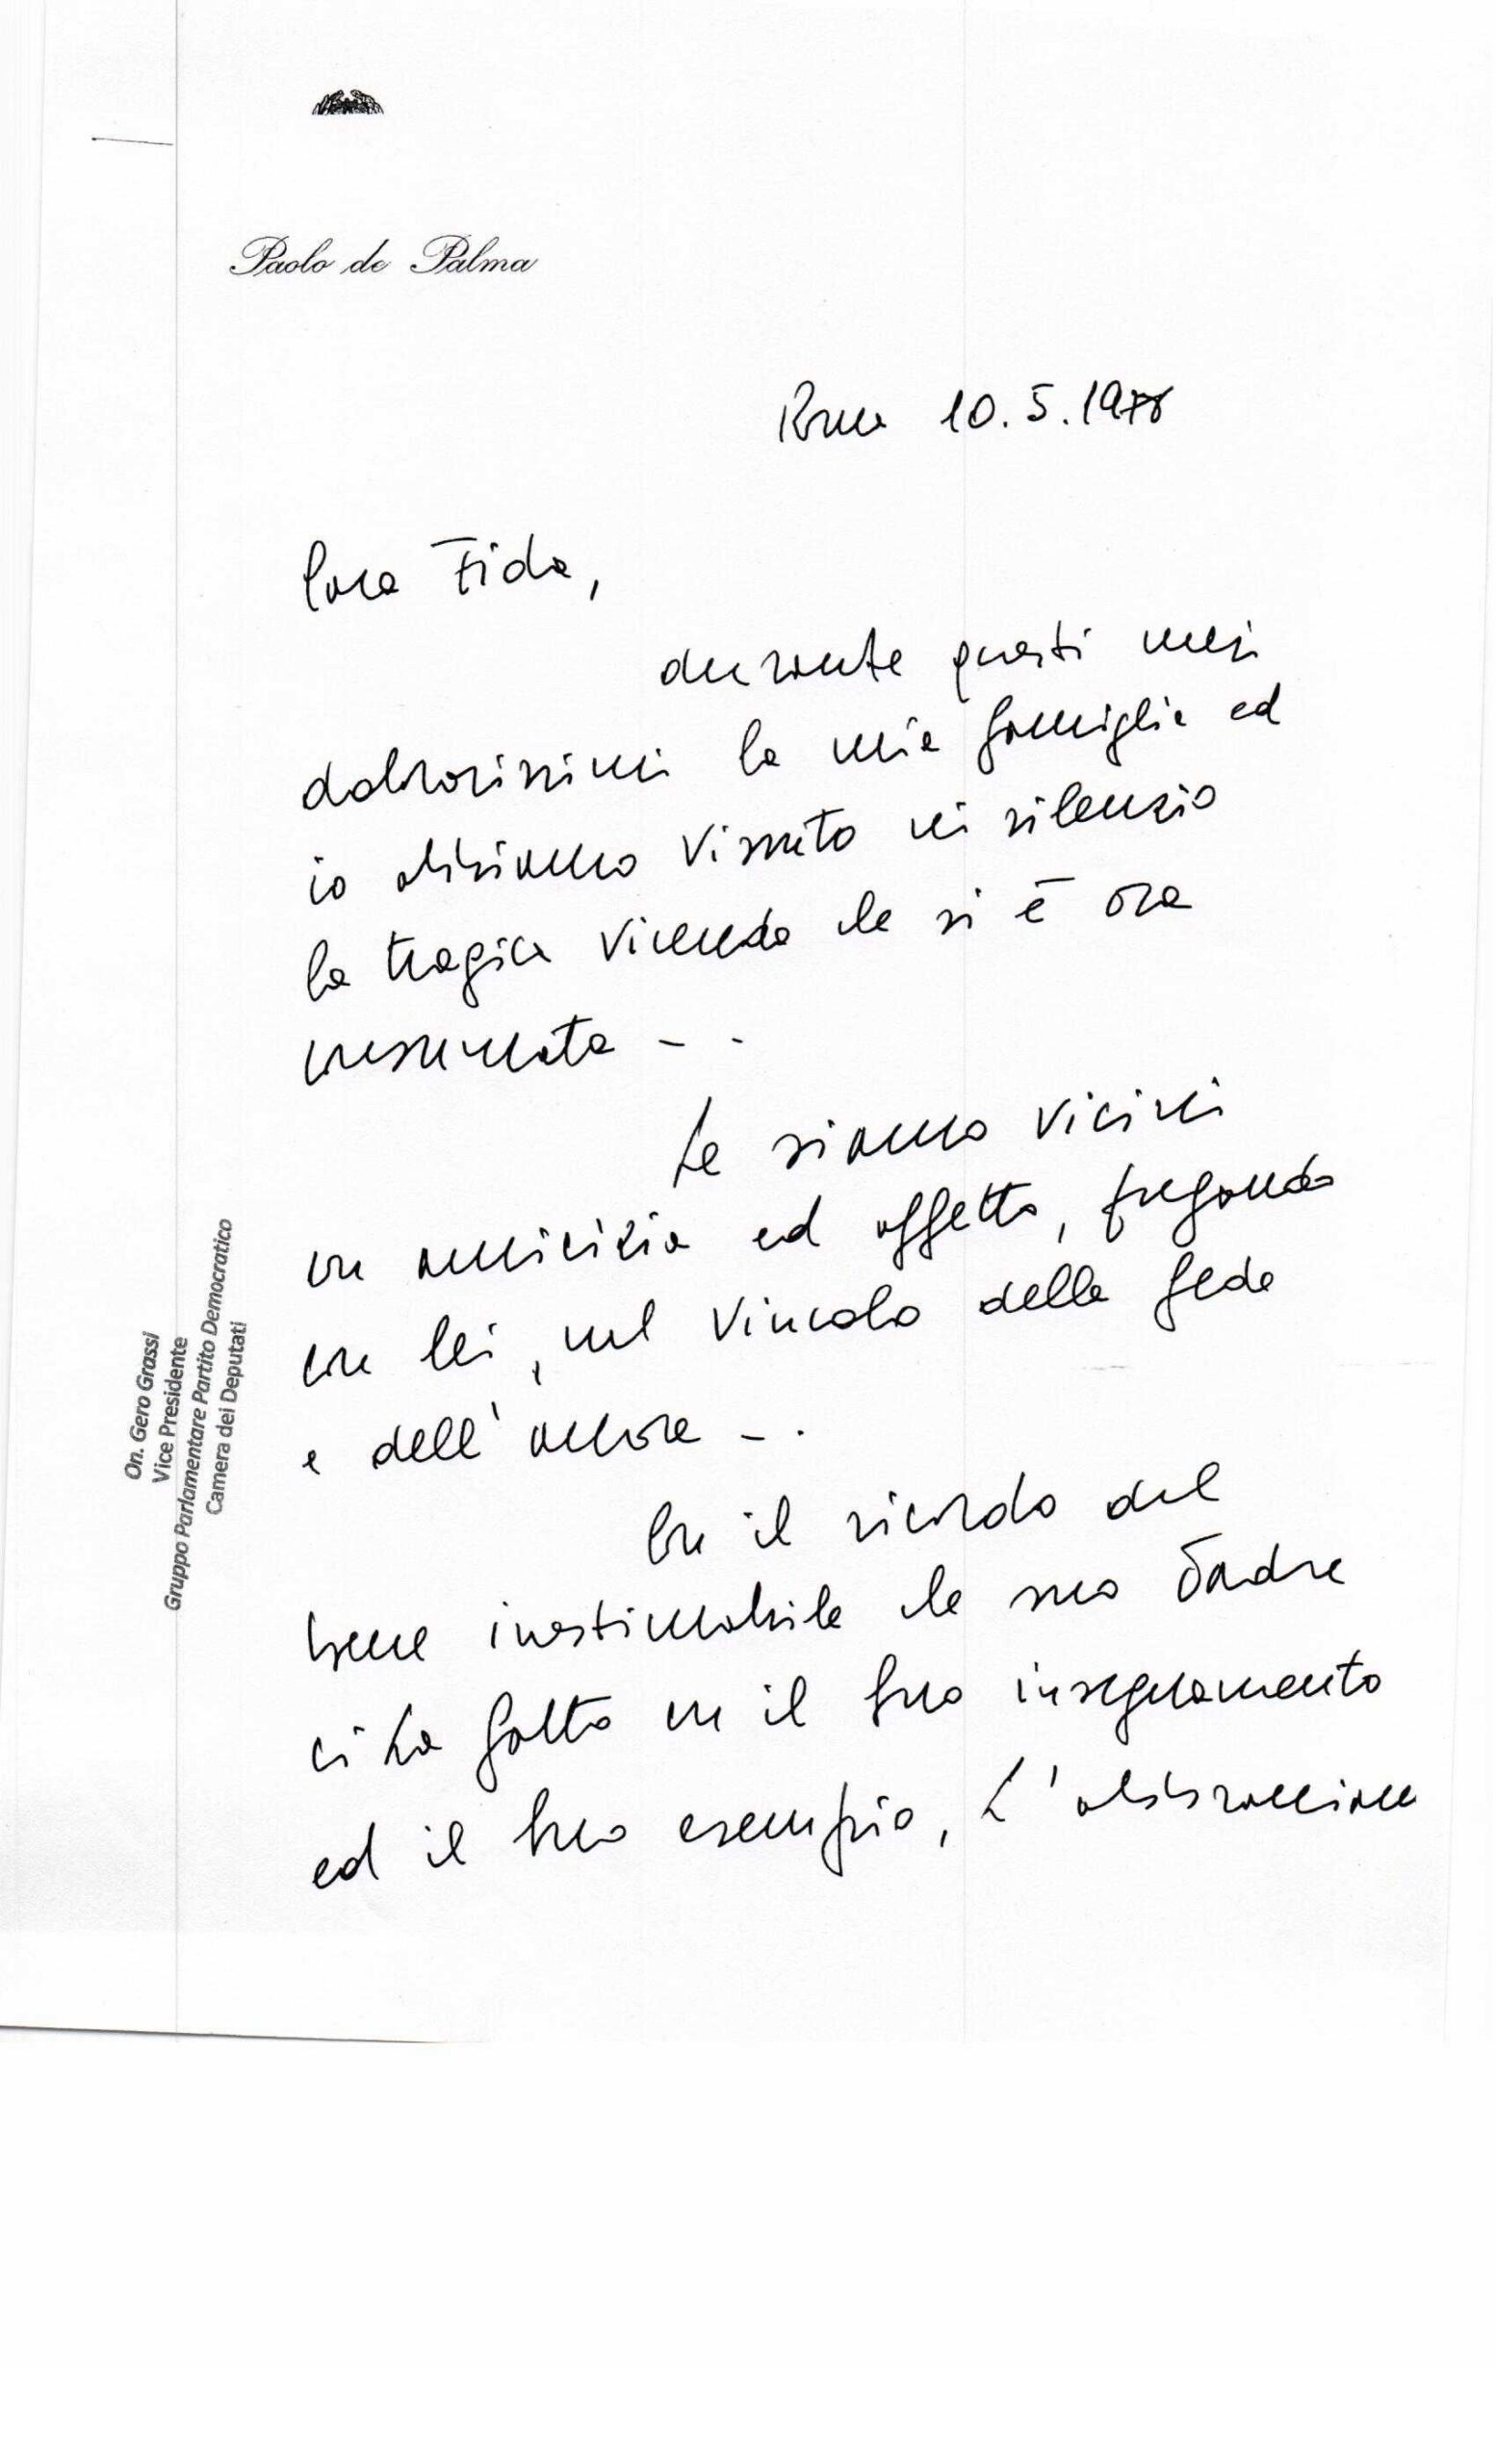 Paolo de Palma
Roma 10.5.1978
Cara Fida,
durante questi mesi
dolorosissimi la mia famiglia ed
io abbiamo vissuto in silenzio
la tragica vicenda che si è ora
consumata - .
Le siamo vicini
con amicizia ed affetto, pregando
con lei, nel vincolo della fede
e dell'amore - .
Con il ricordo del
bene inestimabile che suo Padre
ci ha fatto con il Suo insegnamento
ed il Suo esempio, L'abbracciamo
On. Gero Grassi
Vice Presidente
Gruppo Parlamentare Partito Democratico
Camera dei Deputati